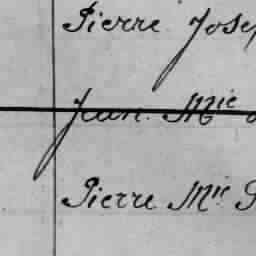 Pierre Jose
Jean Mie
Pierre Mie